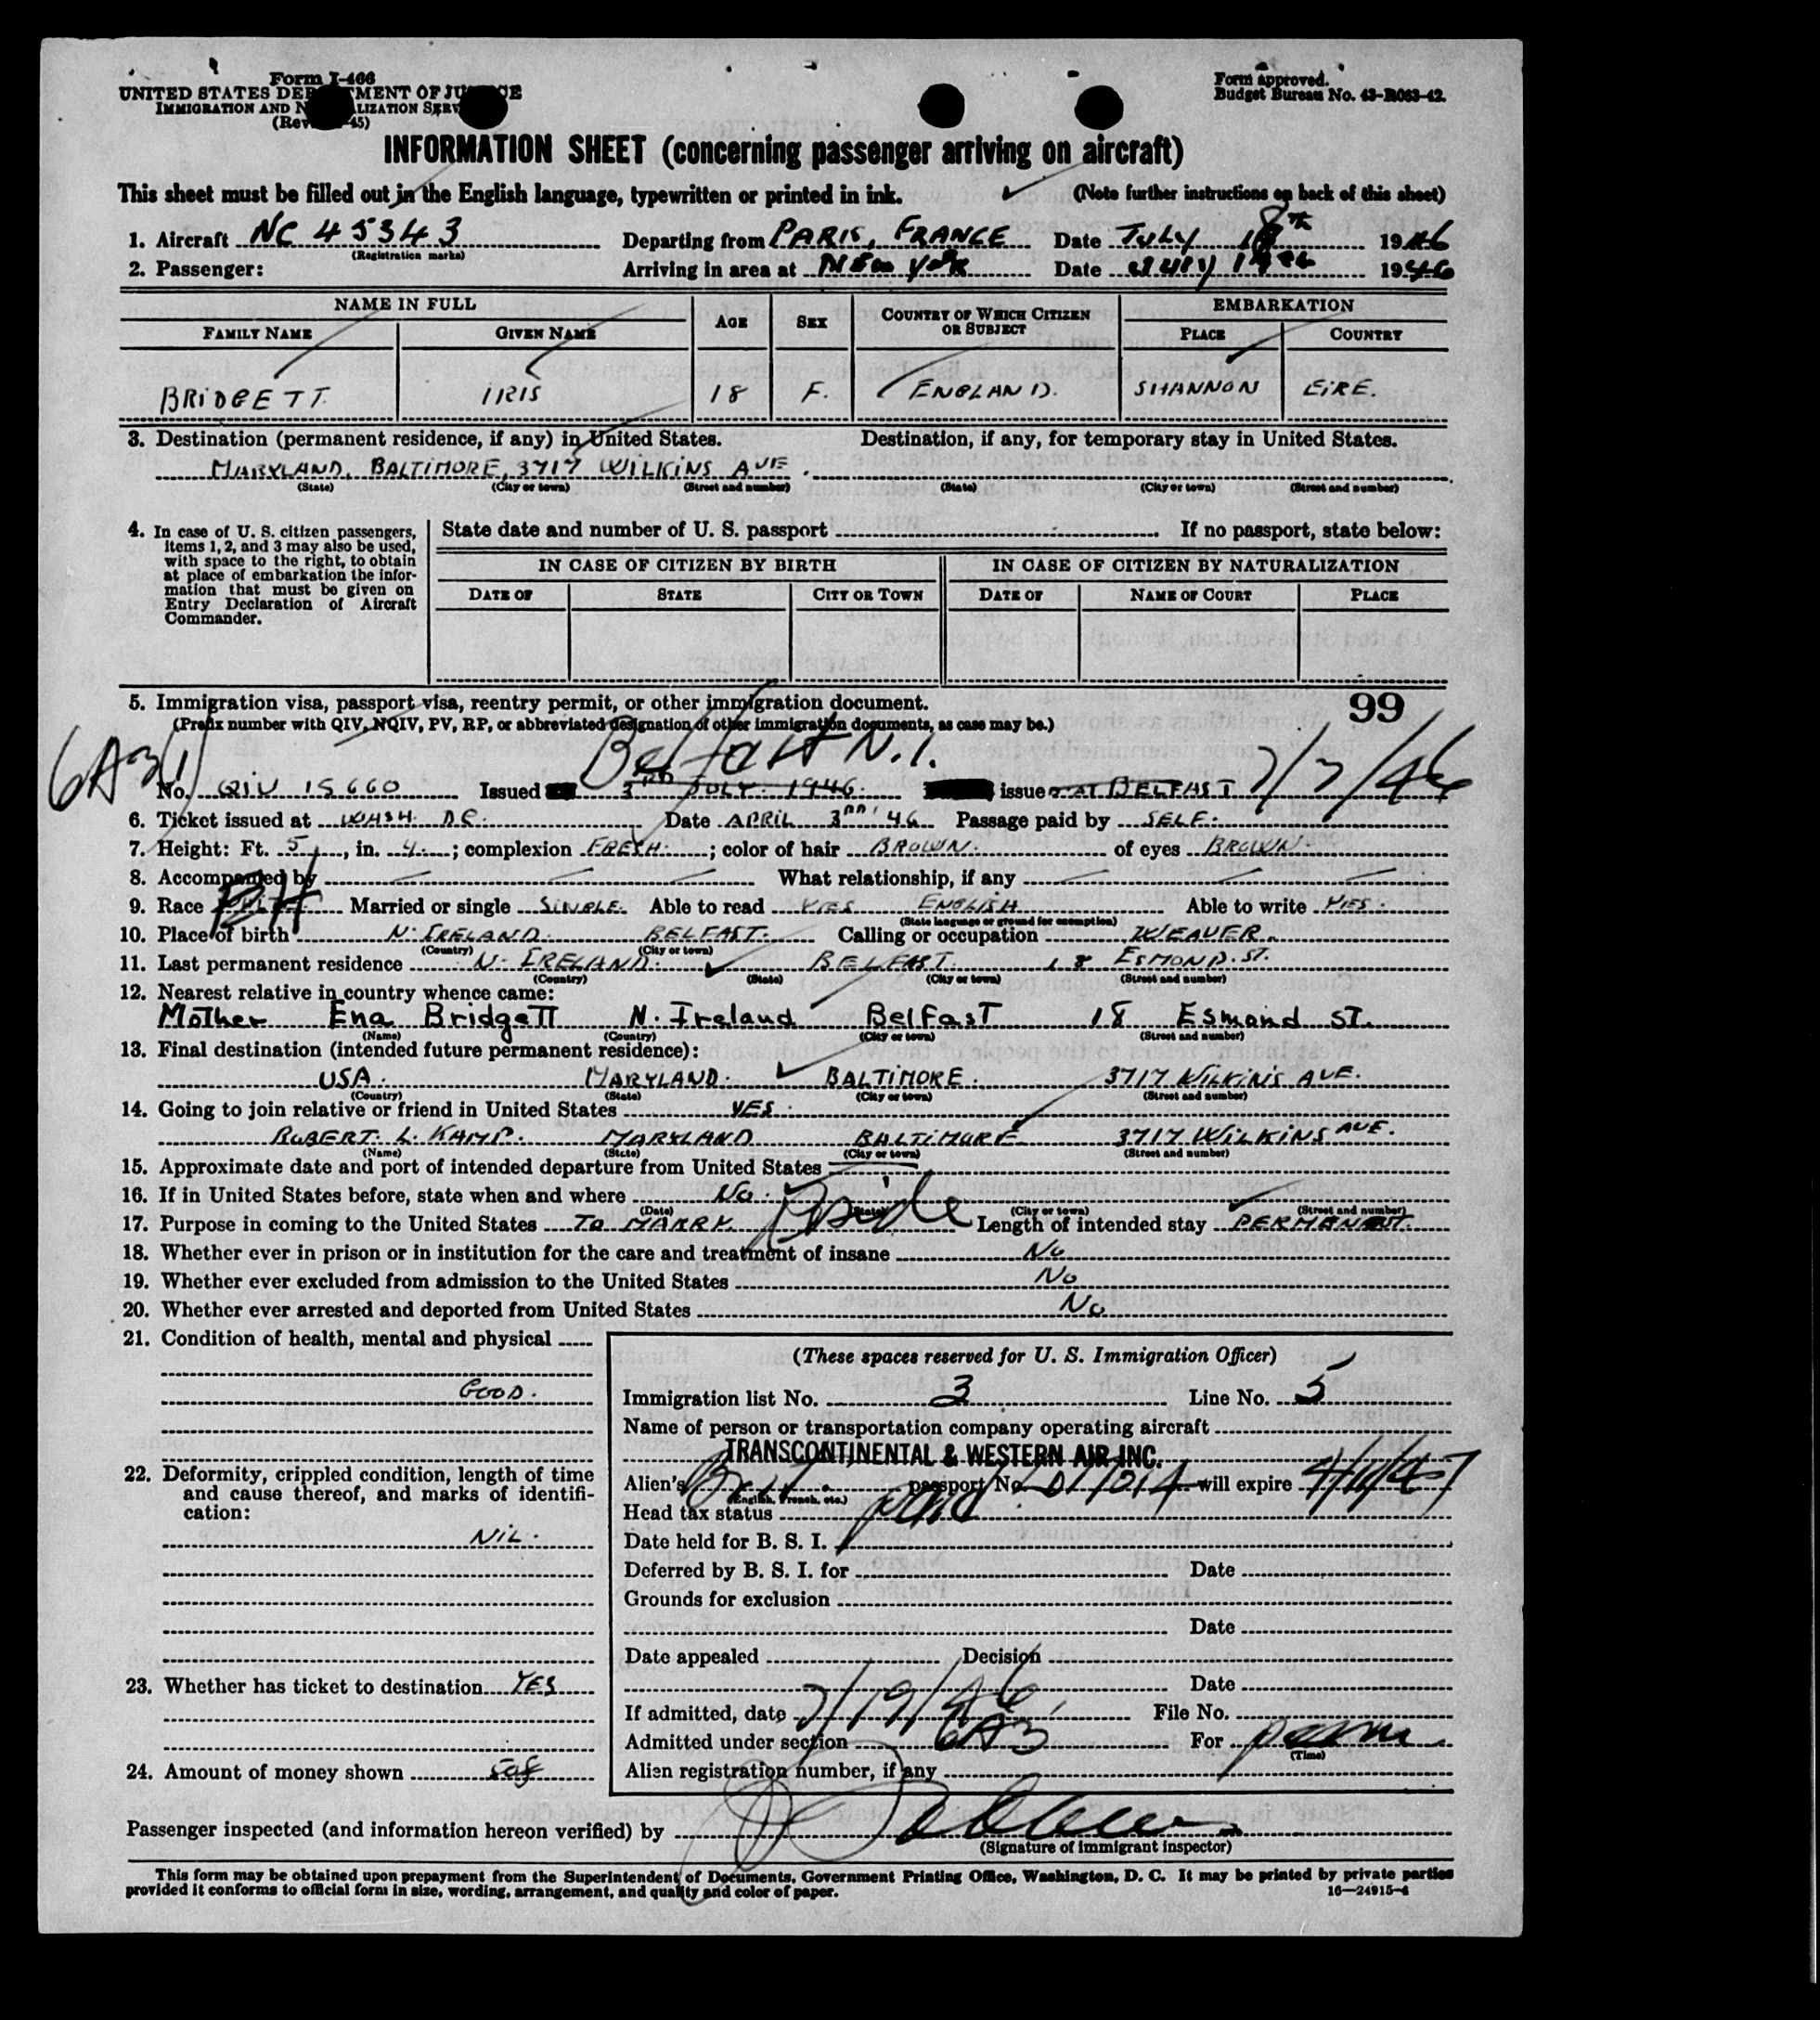 Form I-466
UNITED STATES DEP TMENT OF JU CE
IMMIGRATION AND N ALIZATION SERV
(Rev. 45)
Form approved.
Budget Bureau No. 43-R063-42.
INFORMATION SHEET (concerning passenger arriving on aircraft)
This sheet must be filled out in the English language, typewritten or printed in ink. (Note further instructions on back of this sheet)
1. Aircraft NC 45343 Departing from PARIS, FRANCE Date JULY 18th 1946
(Registration marks)
2. Passenger: Arriving in area at New York Date July 19th 1946
NAME IN FULL AGE SEX COUNTRY OF WHICH CITIZEN OR SUBJECT EMBARKATION
FAMILY NAME GIVEN NAME PLACE COUNTRY
BRIDGETT IRIS 18 F. ENGLAND. SHANNON EIRE.
3. Destination (permanent residence, if any) in United States. Destination, if any, for temporary stay in United States.
MARYLAND, BALTIMORE, 3717 WILKINS AVE.
(State) (City or town) (Street and number) (State) (City or town) (Street and number)
4. In case of U. S. citizen passengers, items 1, 2, and 3 may also be used, with space to the right, to obtain at place of embarkation the information that must be given on Entry Declaration of Aircraft Commander.
State date and number of U. S. passport If no passport, state below:
IN CASE OF CITIZEN BY BIRTH IN CASE OF CITIZEN BY NATURALIZATION
DATE OF STATE CITY OR TOWN DATE OF NAME OF COURT PLACE
5. Immigration visa, passport visa, reentry permit, or other immigration document. 99
(Prefix number with QIV, NQIV, PV, RP, or abbreviated designation of other immigration documents, as case may be.)
6A3 Belfast N.I.
No. QIV 15660 Issued 3RD JULY 1946. issue AT BELFAST 7/3/46
6. Ticket issued at WASH. DC. Date APRIL 3RD '46 Passage paid by SELF.
7. Height: Ft. 5, in. 4.; complexion FRESH; color of hair BROWN. of eyes BROWN.
8. Accompanied by What relationship, if any
9. Race Married or single SINGLE. Able to read YES ENGLISH Able to write YES.
(State language or ground for exemption)
10. Place of birth N. IRELAND. BELFAST. Calling or occupation WEAVER.
(Country) (City or town)
11. Last permanent residence N. IRELAND. BELFAST. 18 ESMOND. ST.
(Country) (State) (City or town) (Street and number)
12. Nearest relative in country whence came:
Mother Ena Bridgett N. Ireland Belfast 18 Esmond St.
(Name) (Country) (City or town) (Street and number)
13. Final destination (intended future permanent residence):
USA. MARYLAND. BALTIMORE. 3717 WILKINS AVE.
(Country) (State) (City or town) (Street and number)
14. Going to join relative or friend in United States YES.
ROBERT. L. KAMP. MARYLAND BALTIMORE 3717 WILKINS AVE.
(Name) (State) (City or town) (Street and number)
15. Approximate date and port of intended departure from United States
16. If in United States before, state when and where No.
(Date) (State) (City or town) (Street and number)
17. Purpose in coming to the United States To MARRY Bride Length of intended stay PERMANENT.
18. Whether ever in prison or in institution for the care and treatment of insane No
19. Whether ever excluded from admission to the United States No
20. Whether ever arrested and deported from United States No
21. Condition of health, mental and physical
GOOD.
22. Deformity, crippled condition, length of time and cause thereof, and marks of identification:
NIL.
23. Whether has ticket to destination YES
24. Amount of money shown
(These spaces reserved for U. S. Immigration Officer)
Immigration list No. 3 Line No. 5
Name of person or transportation company operating aircraft
TRANSCONTINENTAL & WESTERN AIR INC.
Alien's Brit. passport No. D17014 will expire 4/11/47
(English, French, etc.)
Head tax status paid
Date held for B. S. I.
Deferred by B. S. I. for Date
Grounds for exclusion
Date
Date appealed Decision
Date
If admitted, date 7/19/46 File No.
Admitted under section 6A3 For perm
(Time)
Alien registration number, if any
Passenger inspected (and information hereon verified) by
(Signature of immigrant inspector)
This form may be obtained upon prepayment from the Superintendent of Documents, Government Printing Office, Washington, D. C. It may be printed by private parties
provided it conforms to official form in size, wording, arrangement, and quality and color of paper. 16—24915-4